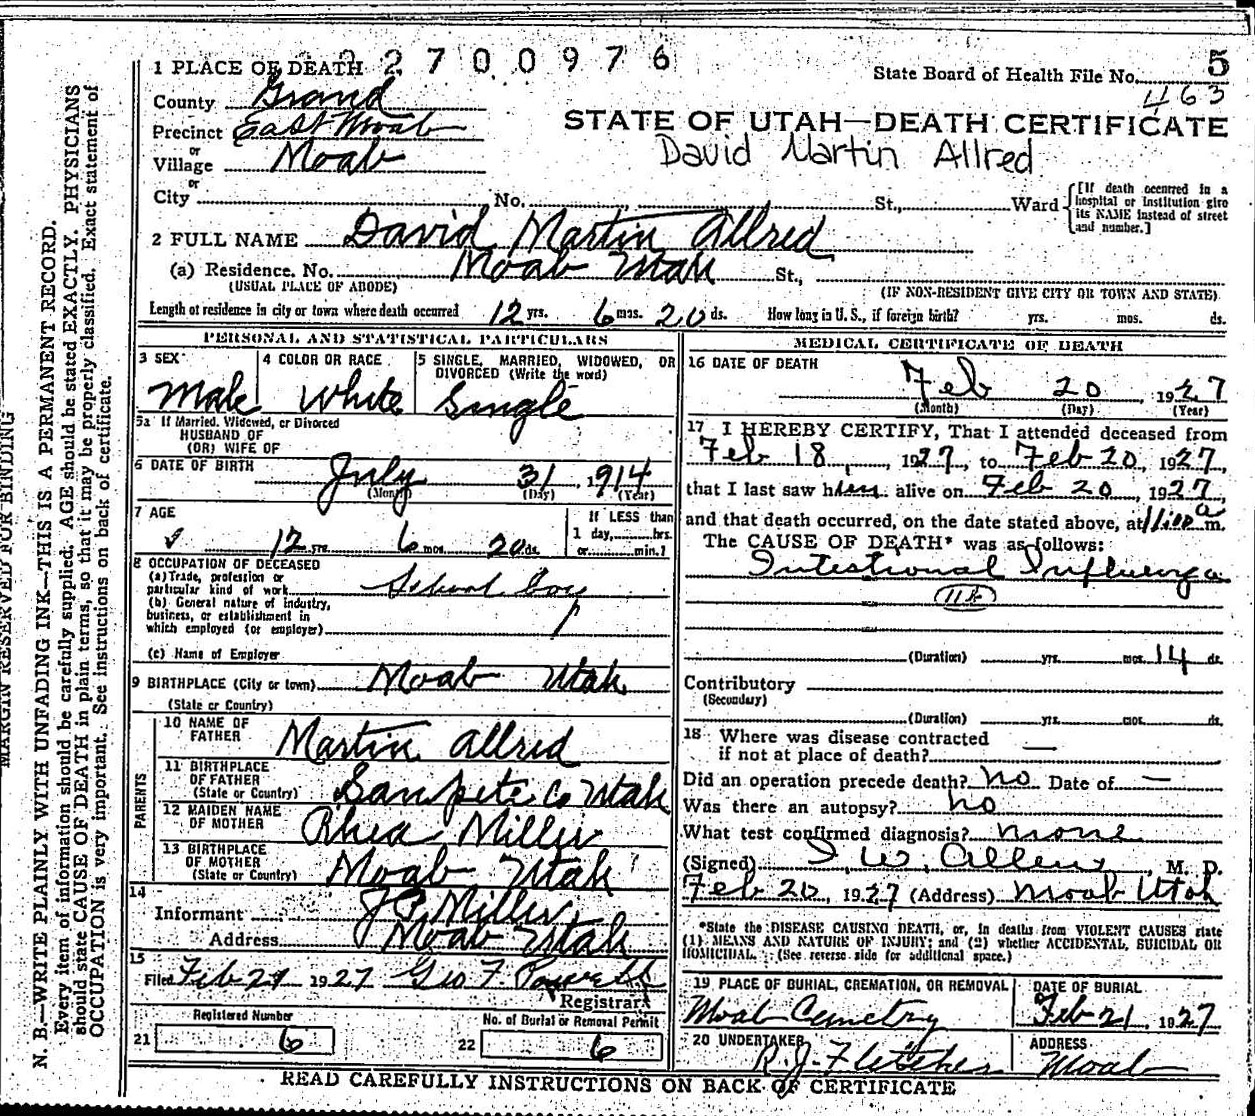 2 2 7 0 0 9 7 6
1 PLACE OF DEATH
State Board of Health File No. 5
463
County Grand
STATE OF UTAH—DEATH CERTIFICATE
Precinct East Moab
David Martin Allred
or
Village Moab
or
City No. St., Ward
[If death occurred in a hospital or institution give its NAME instead of street and number.]
2 FULL NAME David Martin Allred
(a) Residence. No. Moab Utah St.,
(USUAL PLACE OF ABODE) (IF NON-RESIDENT GIVE CITY OR TOWN AND STATE)
Length of residence in city or town where death occurred 12 yrs. 6 mos. 20 ds. How long in U. S., if foreign birth? yrs. mos. ds.
PERSONAL AND STATISTICAL PARTICULARS
3 SEX 4 COLOR OR RACE 5 SINGLE, MARRIED, WIDOWED, OR
DIVORCED (Write the word)
Male White Single
5a If Married, Widowed, or Divorced
HUSBAND OF
(OR) WIFE OF
6 DATE OF BIRTH July 31, 1914
(Month) (Day) (Year)
7 AGE 12 yrs. 6 mos. 20 ds.
If LESS than
1 day, hrs.
or min.?
8 OCCUPATION OF DECEASED
(a) Trade, profession or
particular kind of work School boy
(b) General nature of industry,
business, or establishment in
which employed (or employer)
(c) Name of Employer
9 BIRTHPLACE (City or town) Moab Utah
(State or Country)
PARENTS
10 NAME OF
FATHER Martin Allred
11 BIRTHPLACE
OF FATHER
(State or Country) Sanpete Co Utah
12 MAIDEN NAME
OF MOTHER Rhea Miller
13 BIRTHPLACE
OF MOTHER
(State or Country) Moab Utah
14
Informant J P Miller
Address Moab Utah
15
Filed Feb 21 1927 Geo F.
Registrar
Registered Number No. of Burial or Removal Permit
21 6 22 6
MEDICAL CERTIFICATE OF DEATH
16 DATE OF DEATH
Feb 20 1927
(Month) (Day) (Year)
17 I HEREBY CERTIFY, That I attended deceased from
Feb 18, 1927, to Feb 20, 1927,
that I last saw him alive on Feb 20, 1927,
and that death occurred, on the date stated above, at 11:00 a m.
The CAUSE OF DEATH* was as follows:
Intestional Influenza
(Duration) yrs. mos. 14 ds.
Contributory
(Secondary)
(Duration) yrs. mos. ds.
18 Where was disease contracted
if not at place of death? —
Did an operation precede death? no Date of —
Was there an autopsy? no
What test confirmed diagnosis? none
(Signed) I. W. Allen, M. D.
Feb 20, 1927 (Address) Moab Utah
*State the DISEASE CAUSING DEATH, or, in deaths from VIOLENT CAUSES state
(1) MEANS AND NATURE OF INJURY; and (2) whether ACCIDENTAL, SUICIDAL OR
HOMICIDAL. (See reverse side for additional space.)
19 PLACE OF BURIAL, CREMATION, OR REMOVAL DATE OF BURIAL
Moab Cemetry Feb 21 1927
20 UNDERTAKER ADDRESS
R. J. Fletcher Moab
READ CAREFULLY INSTRUCTIONS ON BACK OF CERTIFICATE
MARGIN RESERVED FOR BINDING
N. B.—WRITE PLAINLY WITH UNFADING INK—THIS IS A PERMANENT RECORD.
Every item of information should be carefully supplied. AGE should be stated EXACTLY. PHYSICIANS
should state CAUSE OF DEATH in plain terms, so that it may be properly classified. Exact statement of
OCCUPATION is very important. See instructions on back of certificate.